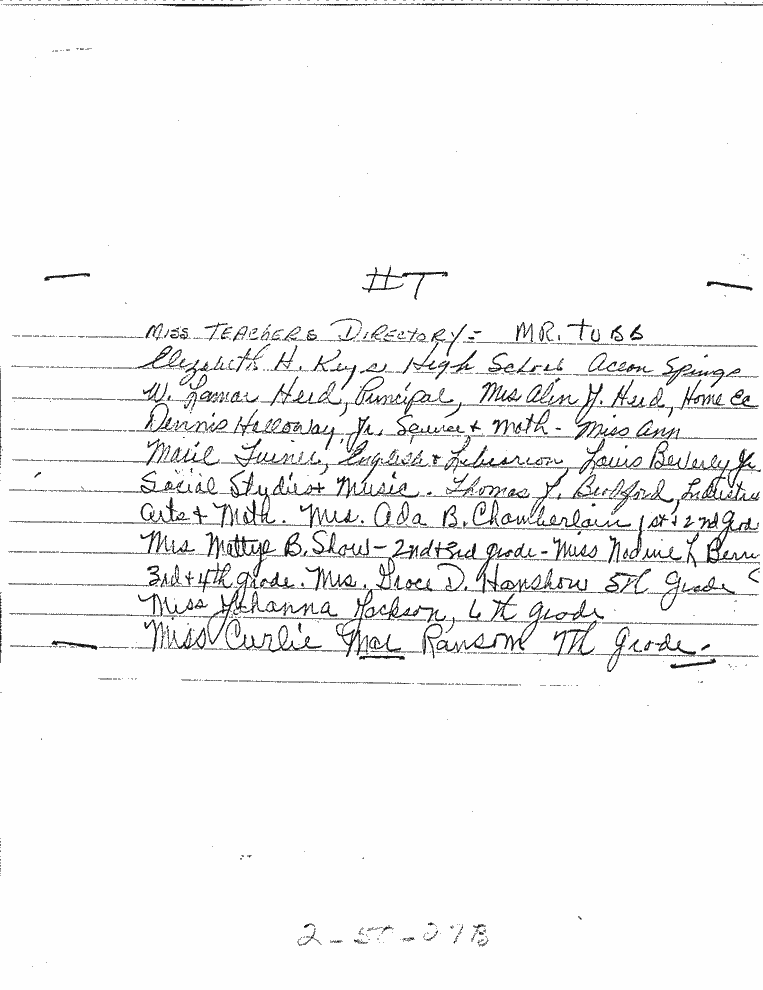 #7
MISS TEACHERS DIRECTORY:- MR. TUBB
Elizabeth H. Keys High School Ocean Springs
W. Lamar Herd, Principal, Mrs Alin J. Herd, Home Ec
Dennis Holloway, Jr. Science + Math - Miss Ann
Marie Turner, English + Librarian, Louis Beverly Jr
Social Studies + Music. Thomas J. Bradford, Industria
arts + Math. Mrs. Ada B. Chamberlain 1st + 2nd grade
Mrs Mattye B. Shaw - 2nd + 3rd grade - Miss Nadine L Berr
3rd + 4th grade. Mrs. Grace D. Hanshow 5th Grade
Miss Johanna Jackson, 6th grade
Miss Curlie Mae Ransom 7th grade.
2-50-27B